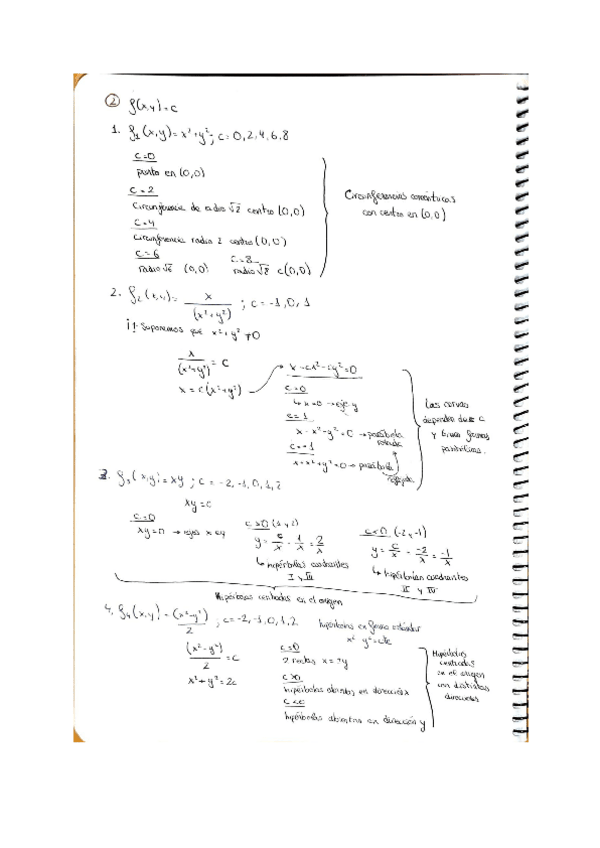 ② f(x,y) = c
1. f₁(x,y) = x² + y² ; c = 0, 2, 4, 6, 8
c = 0
punto en (0,0)
c = 2
Circunferencia de radio √2 centro (0,0)
c = 4
Circunferencia radio 2 centro (0,0)
c = 6
radio √6 (0,0)
c = 8
radio √8 c(0,0)
Circunferencias concéntricas
con centro en (0,0)
2. f₂(x,y) = x / (x² + y²) ; c = -1, 0, 1
Suponemos que x² + y² ≠ 0
x / (x² + y²) = c
x = c(x² + y²)
x - cx² - cy² = 0
c = 0
↳ x = 0 → eje y
c = 1
x - x² - y² = 0 → parábola
c = -1
x + x² + y² = 0 → parábola
Las curvas
dependen de c
y tienen formas
parabólicas.
3. f₃(x,y) = xy ; c = -2, -1, 0, 1, 2
xy = c
c = 0
xy = 0 → ejes x e y
c > 0 (1 y 2)
y = c/x - 1/x = 2/x
↳ hipérbolas cuadrantes
I y III
c < 0 (-2, -1)
y = c/x - -2/x = -1/x
↳ hipérbolas cuadrantes
II y IV
Hipérbolas centradas en el origen
4. f₄(x,y) = (x² - y²) / 2 ; c = -2, -1, 0, 1, 2 hipérbolas en forma estándar
x² y² = cte
(x² - y²) / 2 = c
x² + y² = 2c
c = 0
2 rectas x = ±y
c > 0
hipérbolas abiertas en dirección x
c < 0
hipérbolas abiertas en dirección y
Hipérbolas
centradas
en el origen
con distintas
direcciones